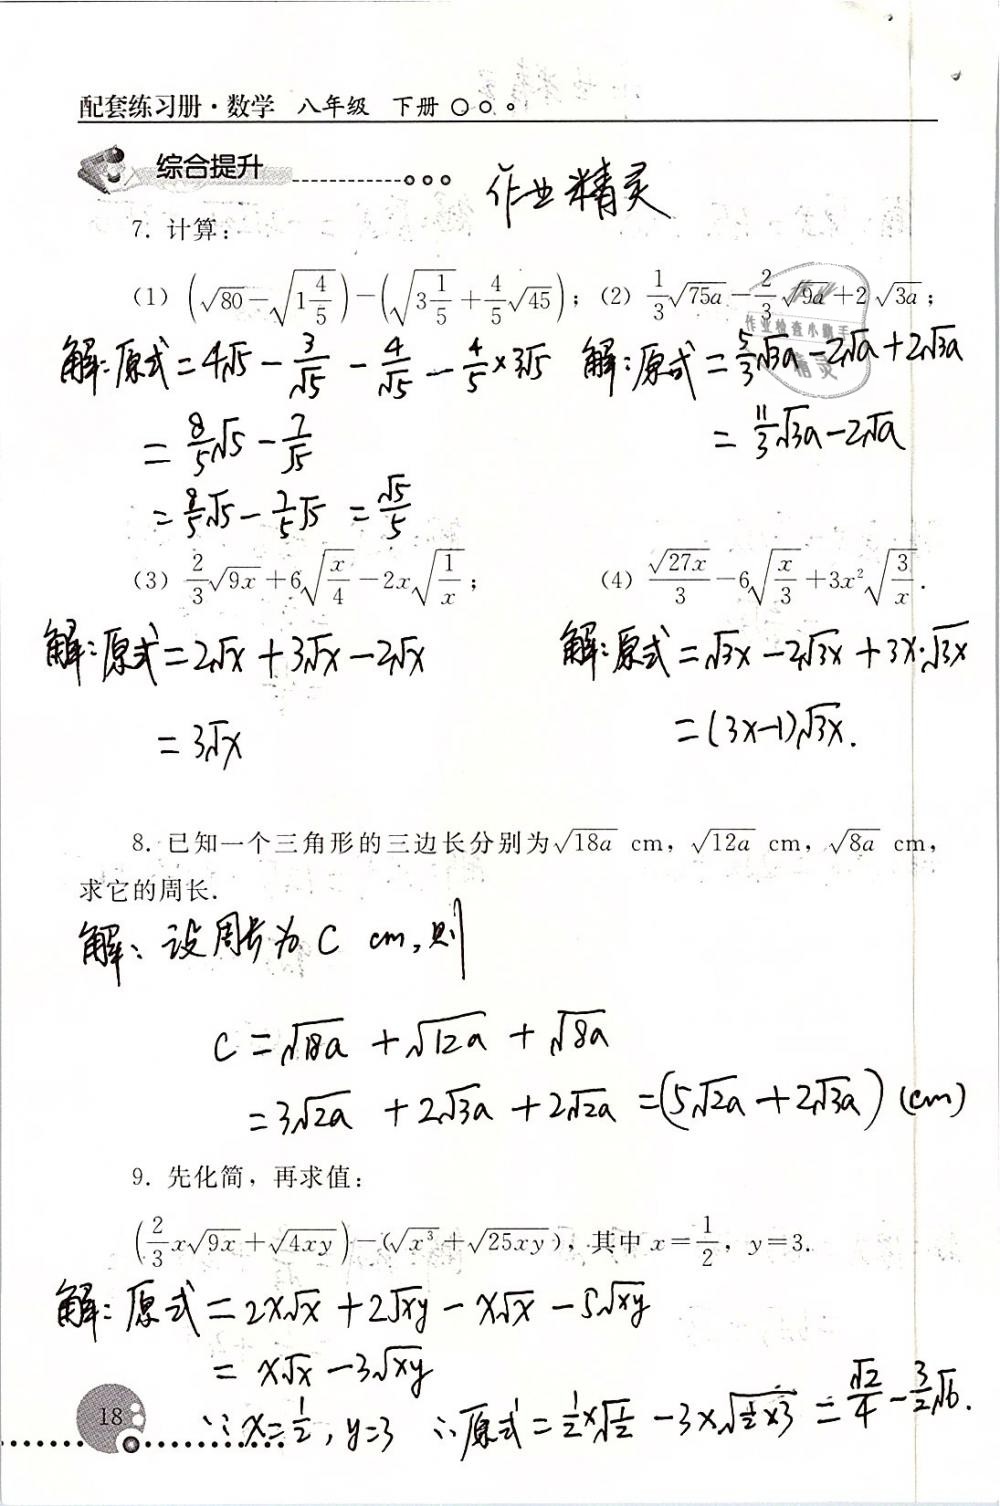 配套练习册·数学 八年级 下册
综合提升
作业精灵
7. 计算:
(1) (√80 - √(1 4/5)) - (√(3 1/5) + 4/5 √45); (2) 1/3 √75a - 2/3 √9a + 2√3a;
解:原式 = 4√5 - 3/√5 - 4/√5 - 4/5 × 3√5 解:原式 = 5/3 √3a - 2√a + 2√3a
= 8/5 √5 - 7/√5 = 11/3 √3a - 2√a
= 8/5 √5 - 7/5 √5 = √5/5
(3) 2/3 √9x + 6√(x/4) - 2x√(1/x); (4) √27x/3 - 6√(x/3) + 3x²√(3/x).
解:原式 = 2√x + 3√x - 2√x 解:原式 = √3x - 2√3x + 3x·√3x
= 3√x = (3x-1)√3x.
8. 已知一个三角形的三边长分别为√18a cm, √12a cm, √8a cm,
求它的周长.
解:设周长为 C cm,则
C = √18a + √12a + √8a
= 3√2a + 2√3a + 2√2a = (5√2a + 2√3a) (cm)
9. 先化简,再求值:
(2/3 x√9x + √4xy) - (√x³ + √25xy), 其中 x = 1/2, y = 3.
解:原式 = 2x√x + 2√xy - x√x - 5√xy
= x√x - 3√xy
∵ x = 1/2, y = 3 ∴原式 = 1/2 × √(1/2) - 3 × √(1/2 × 3) = √2/4 - 3/2 √6.
18